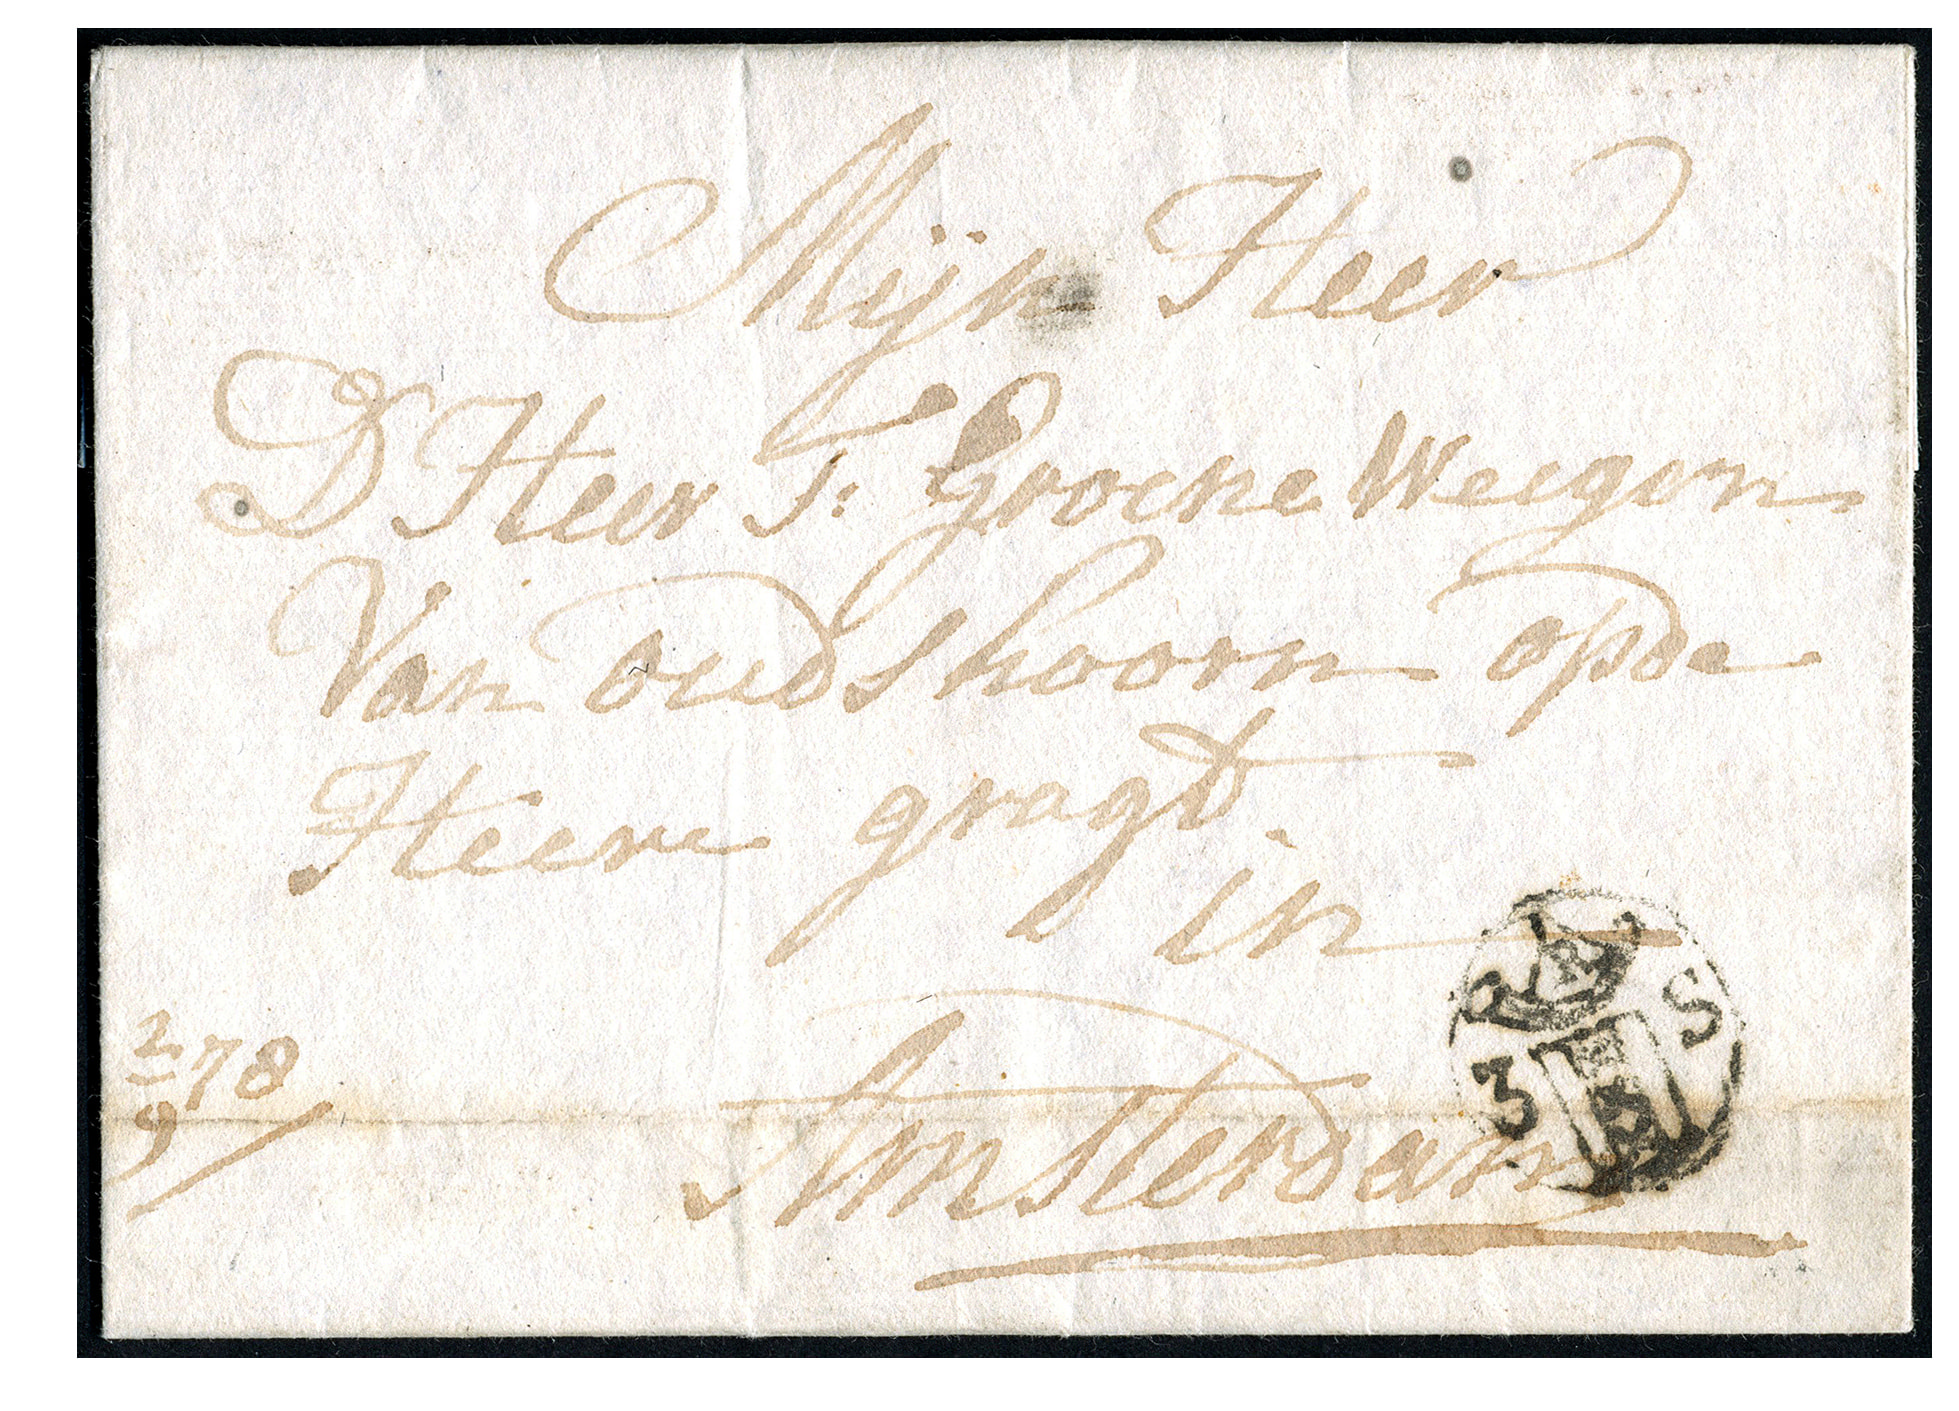 Mijn Heer
D Heer J: Groene Weegen
Van oudshoorn opde
Heere gragt.
in
Amsterdam
3 S
2/9 78